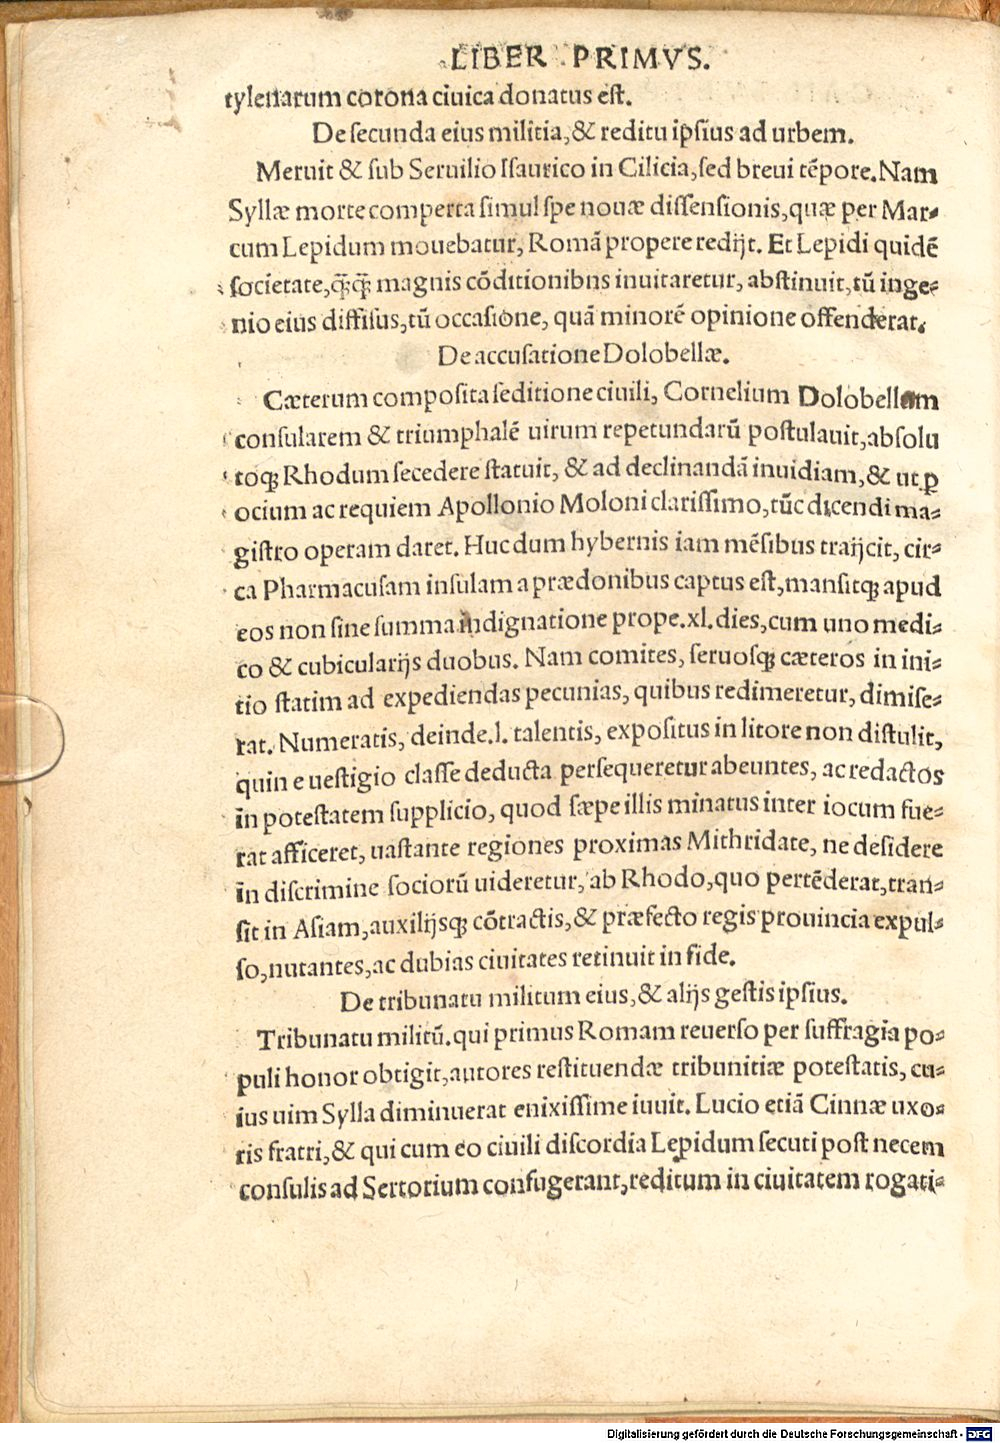 LIBER PRIMVS.
tylenarum corona ciuica donatus eſt.
De ſecunda eius militia, & reditu ipſius ad urbem.
Meruit & ſub Seruilio Iſaurico in Cilicia, ſed breui tēpore. Nam
Syllæ morte comperta ſimul ſpe nouæ diſſenſionis, quæ per Mar⸗
cum Lepidum mouebatur, Romā propere redijt. Et Lepidi quidē
ſocietate, q̄q̄ magnis cōditionibns inuitaretur, abſtinuit, tū inge⸗
nio eius diffiſus, tū occaſione, quā minorē opinione offenderat.
De accuſatione Dolobellæ.
Cæterum compoſita ſeditione ciuili, Cornelium Dolobellam
conſularem & triumphalē uirum repetundarū poſtulauit, abſolu
toq; Rhodum ſecedere ſtatuit, & ad declinandā inuidiam, & ut ꝑ
ocium ac requiem Apollonio Moloni clariſſimo, tūc dicendi ma⸗
giſtro operam daret. Huc dum hybernis iam mēſibus traijcit, cir⸗
ca Pharmacuſam inſulam a prædonibus captus eſt, manſitq; apud
eos non ſine ſumma indignatione prope .xl. dies, cum uno medi⸗
co & cubicularijs duobus. Nam comites, ſeruoſq; cæteros in ini⸗
tio ſtatim ad expediendas pecunias, quibus redimeretur, dimiſe⸗
rat. Numeratis, deinde .l. talentis, expoſitus in litore non diſtulit,
quin e ueſtigio claſſe deducta perſequeretur abeuntes, ac redactos
in poteſtatem ſupplicio, quod ſæpe illis minatus inter iocum fue⸗
rat afficeret, uaſtante regiones proximas Mithridate, ne deſidere
in diſcrimine ſociorū uideretur, ab Rhodo, quo pertēderat, tran⸗
ſit in Aſiam, auxilijſq; cōtractis, & præfecto regis prouincia expul⸗
ſo, nutantes, ac dubias ciuitates retinuit in fide.
De tribunatu militum eius, & alijs geſtis ipſius.
Tribunatu militū. qui primus Romam reuerſo per ſuffragia po⸗
puli honor obtigit, autores reſtituendæ tribunitiæ poteſtatis, cu⸗
ius uim Sylla diminuerat enixiſſime iuuit. Lucio etiā Cinnæ uxo⸗
ris fratri, & qui cum eo ciuili diſcordia Lepidum ſecuti poſt necem
conſulis ad Sertorium confugerant, reditum in ciuitatem rogati⸗
Digitalisierung gefördert durch die Deutsche Forschungsgemeinschaft - DFG